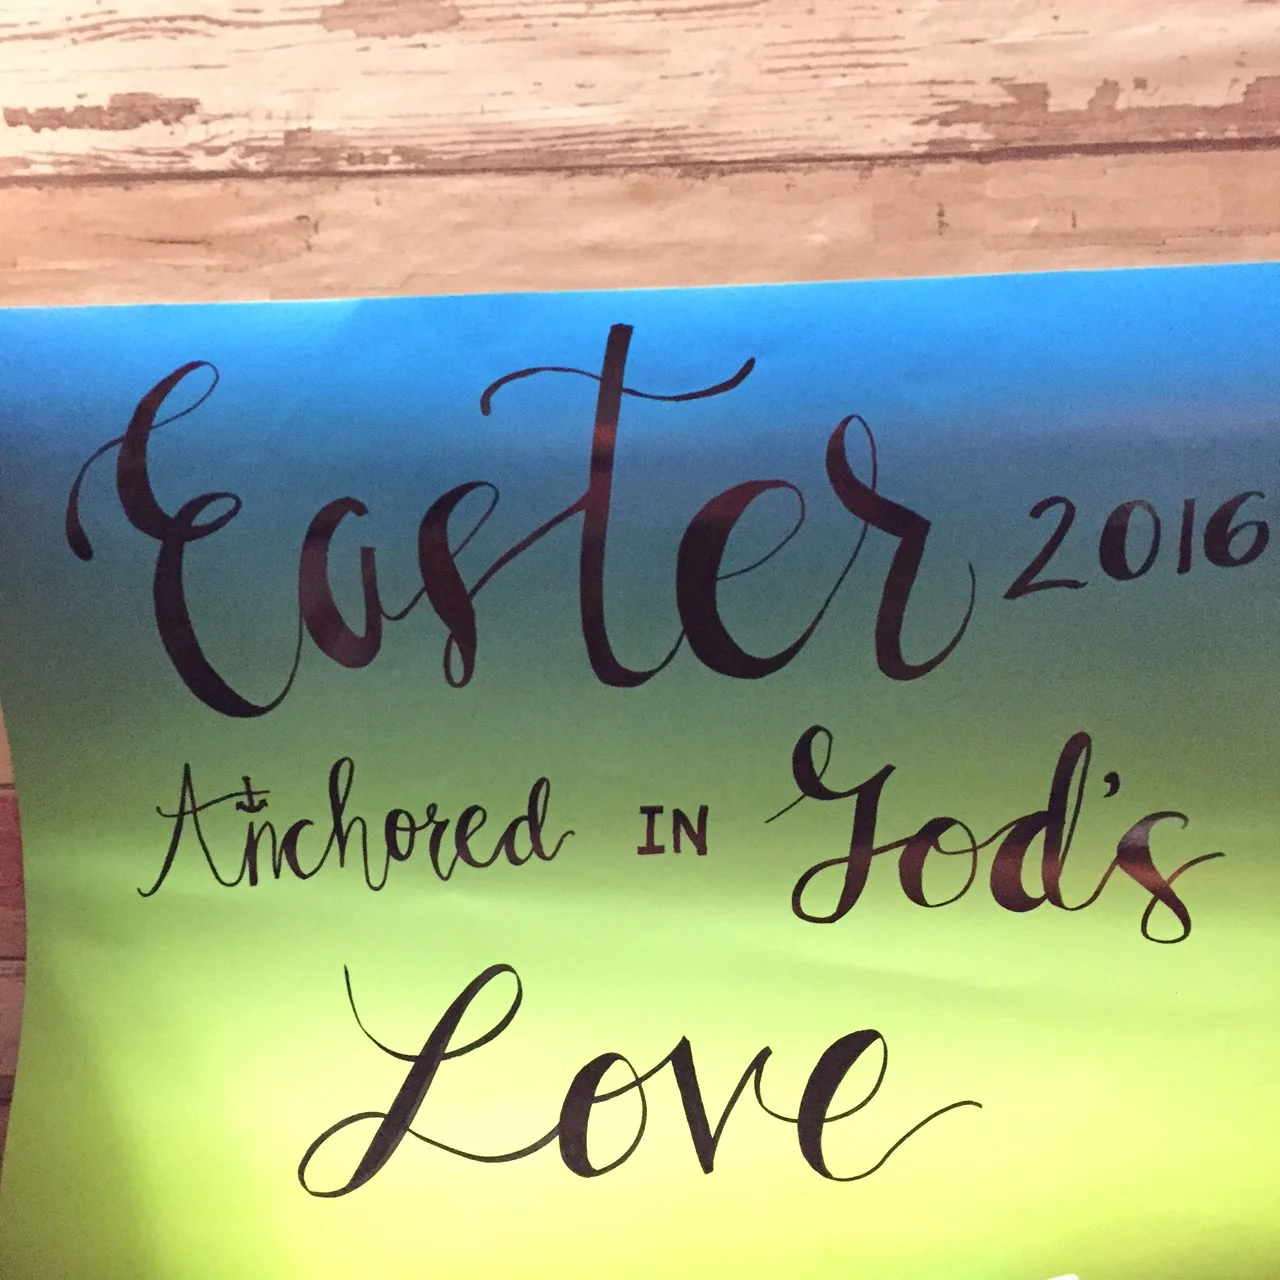 Easter 2016
Anchored IN God's
Love